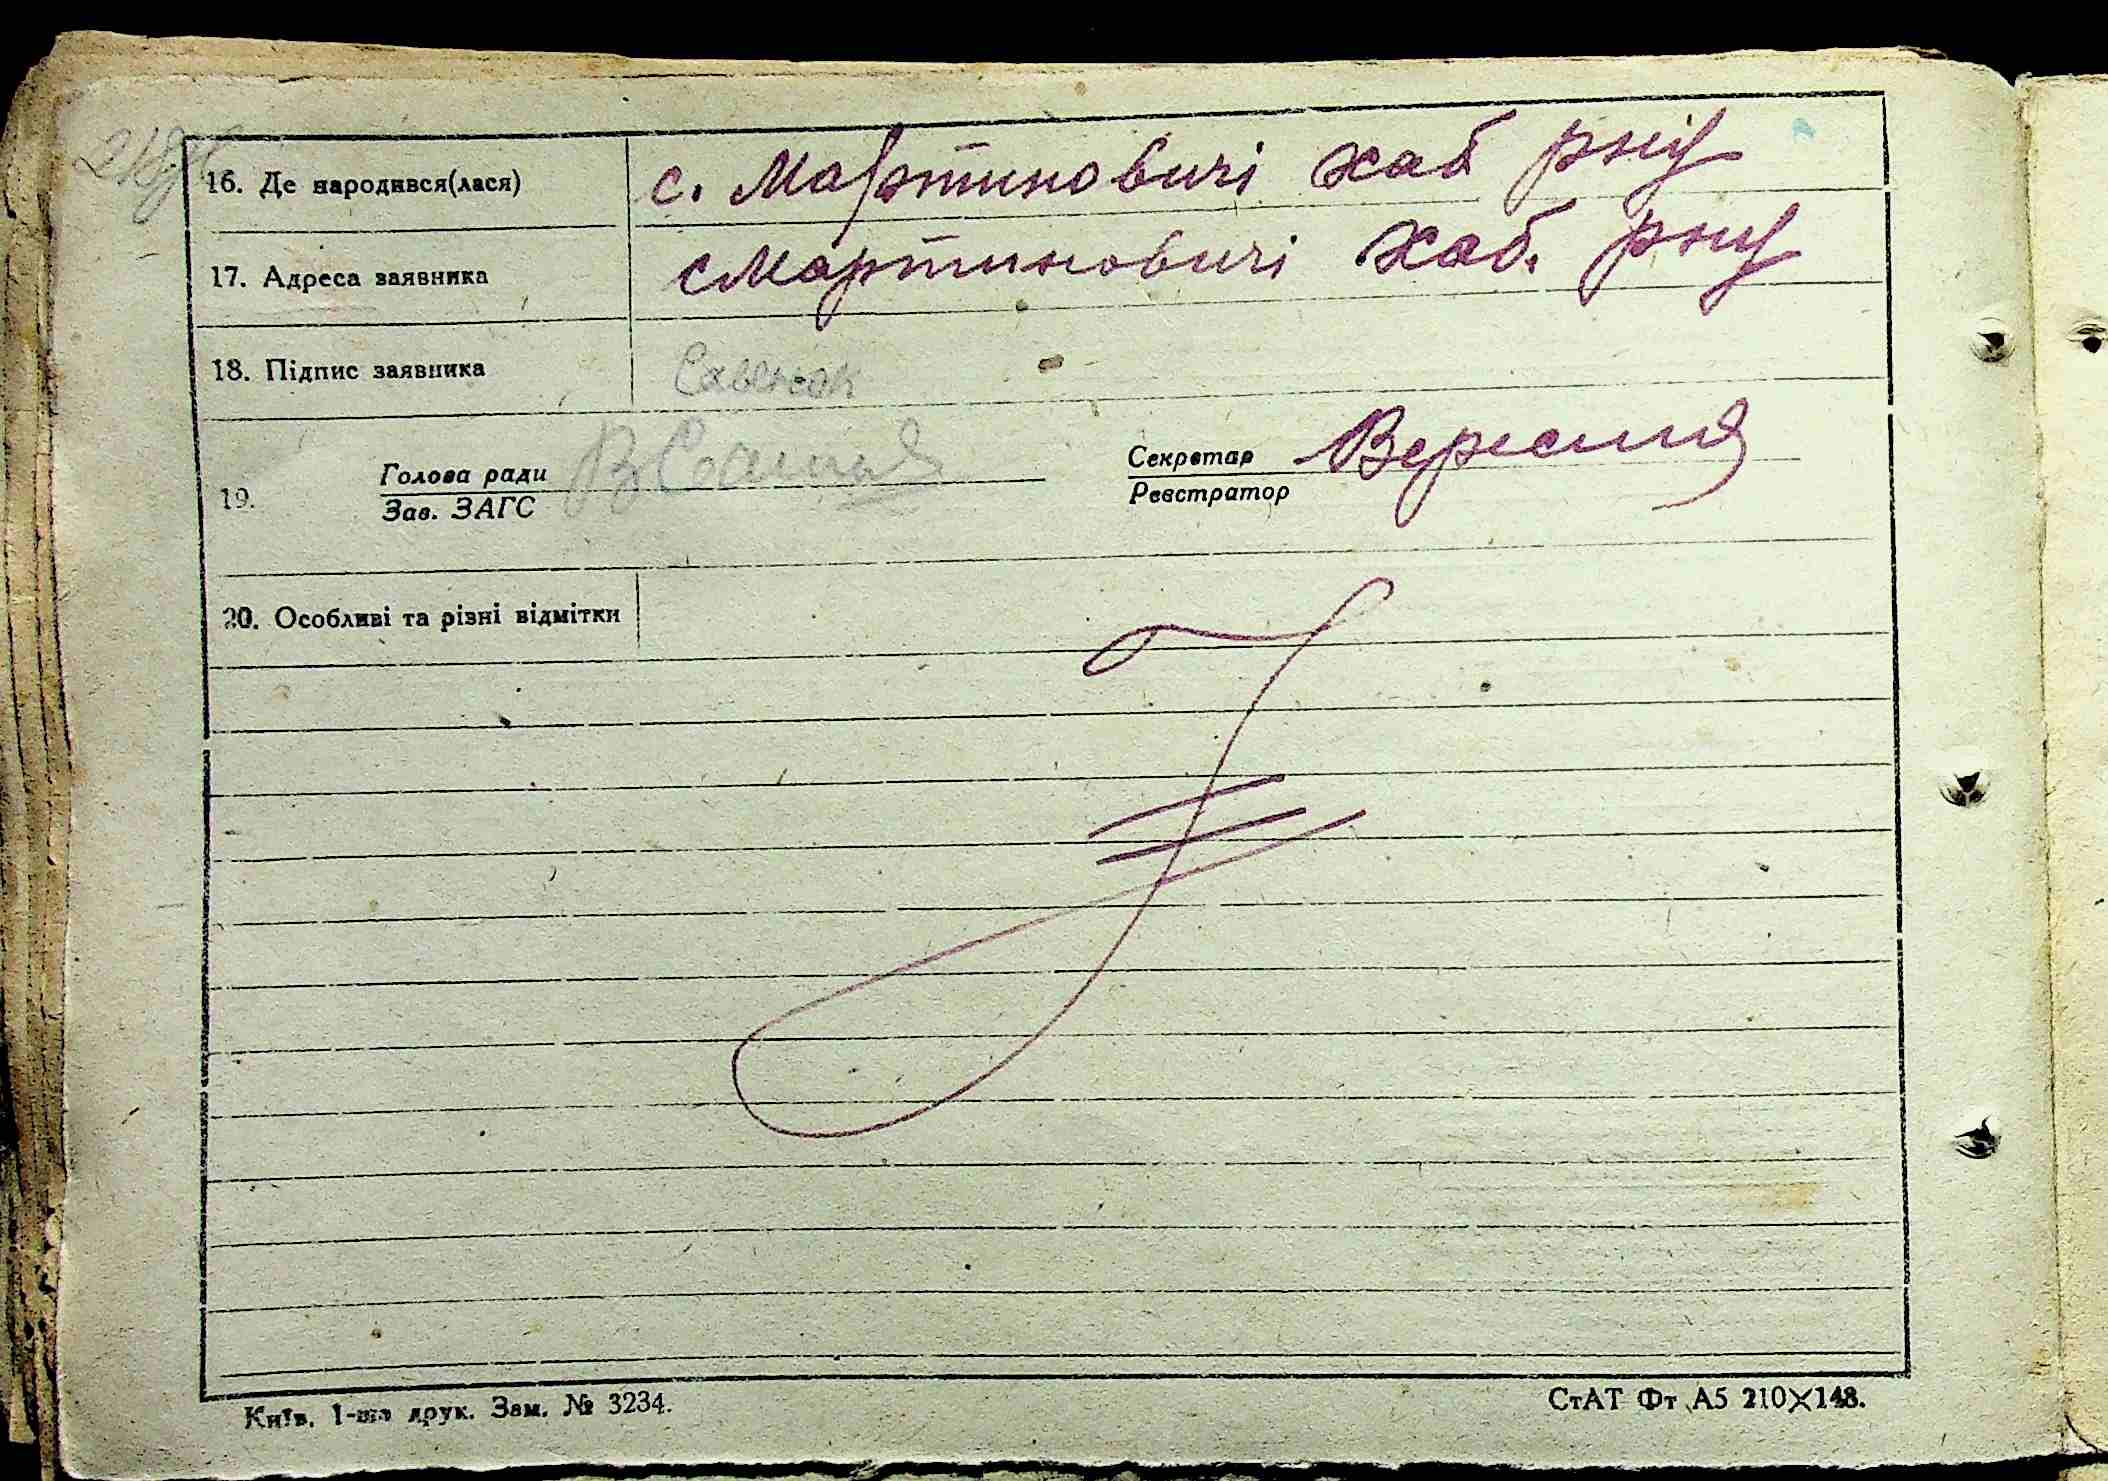 16. Де народився(лася) с. Мартиновичі хаб рну
17. Адреса заявника с Мартиновичі хаб. рну
18. Підпис заявника Савенок
19. Голова ради Секретар
Зав. ЗАГС Реєстратор
20. Особливі та різні відмітки
Київ. 1-ша друк. Зам. № 3234. СтАТ Фт А5 210×148.